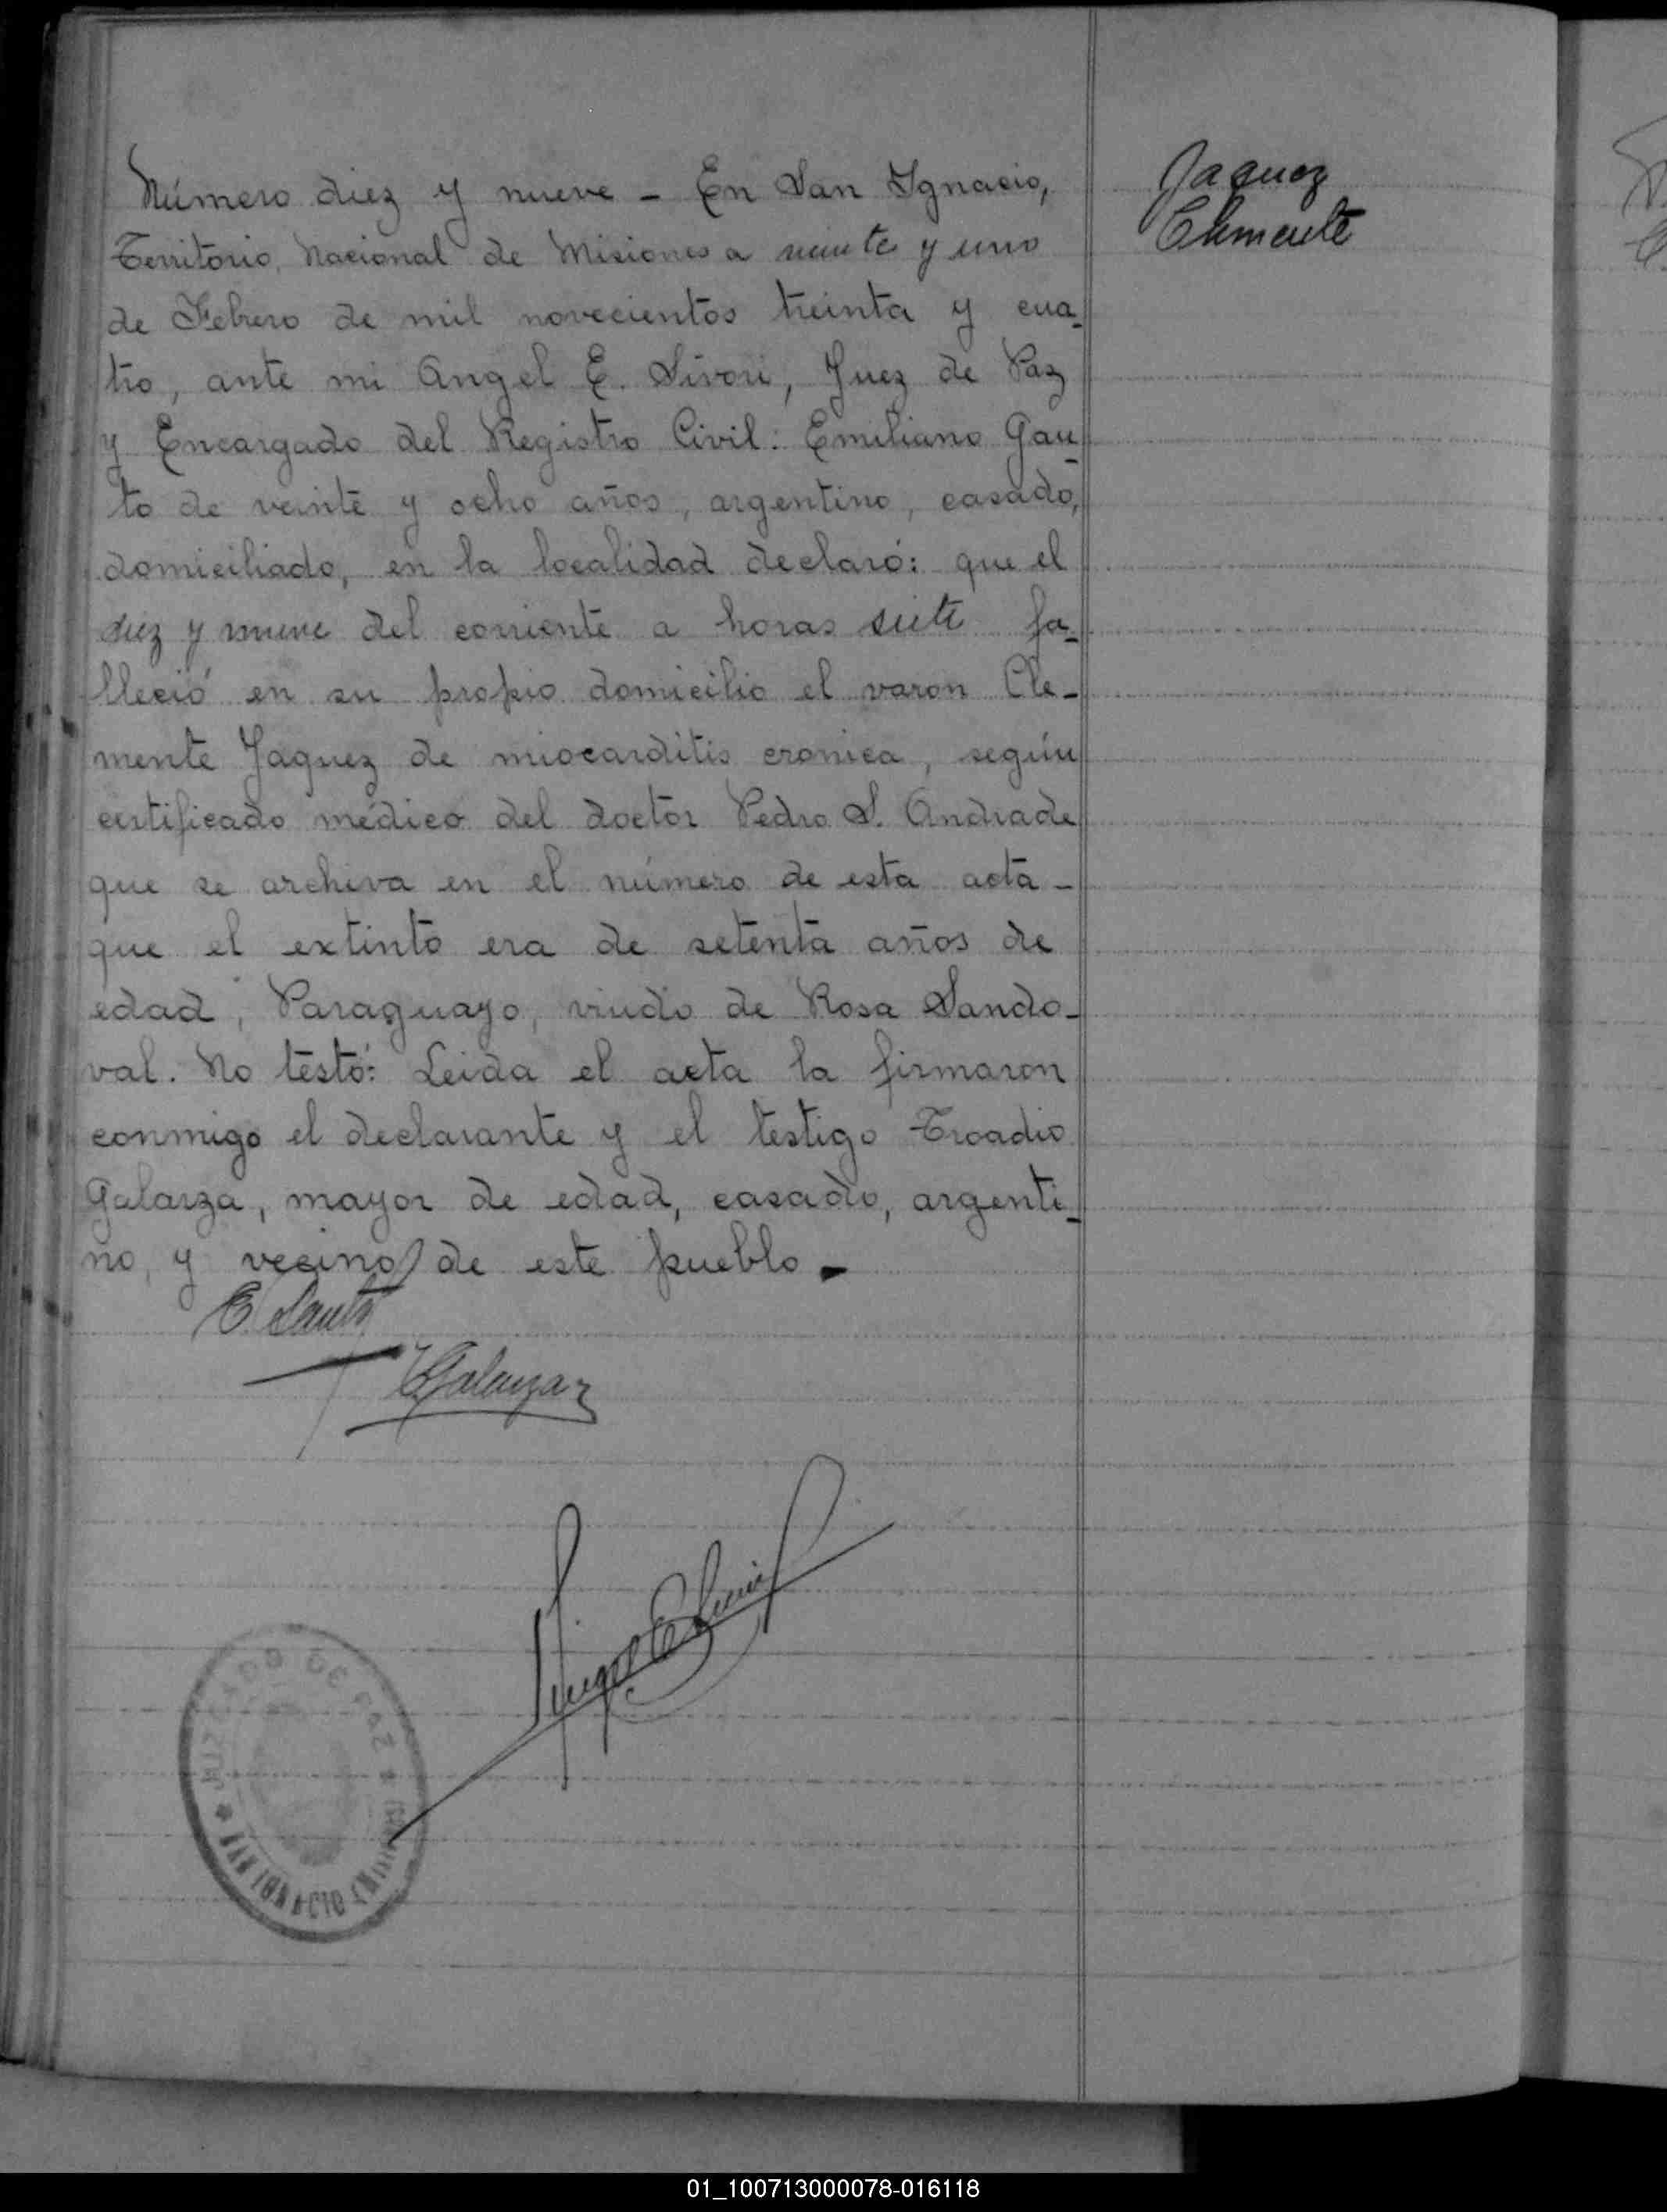 Número diez y nueve - En San Ygnacio,
Territorio Nacional de Misiones a veinte y uno
de Febrero de mil novecientos treinta y cua-
tro, ante mi Angel E. Sívori, Juez de Paz
y Encargado del Registro Civil: Emiliano Gau-
to de veinte y ocho años, argentino, casado,
domiciliado, en la localidad declaró: que el
diez y nueve del corriente a horas siete fa-
lleció en su propio domicilio el varon Cle-
mente Jaquez de miocarditis cronica, según
certificado médico del doctor Pedro S. Andrade
que se archiva en el número de esta acta -
que el extinto era de setenta años de
edad, Paraguayo, viudo de Rosa Sando-
val. No testó: Leida el acta la firmaron
conmigo el declarante y el testigo Troadio
Galarza, mayor de edad, casado, argenti-
no, y vecino de este pueblo -
Jaquez
Clemente
E. Gauto
TGalarza
Angel E Sívori
JUZGADO DE PAZ
SAN IGNACIO
01_100713000078-016118